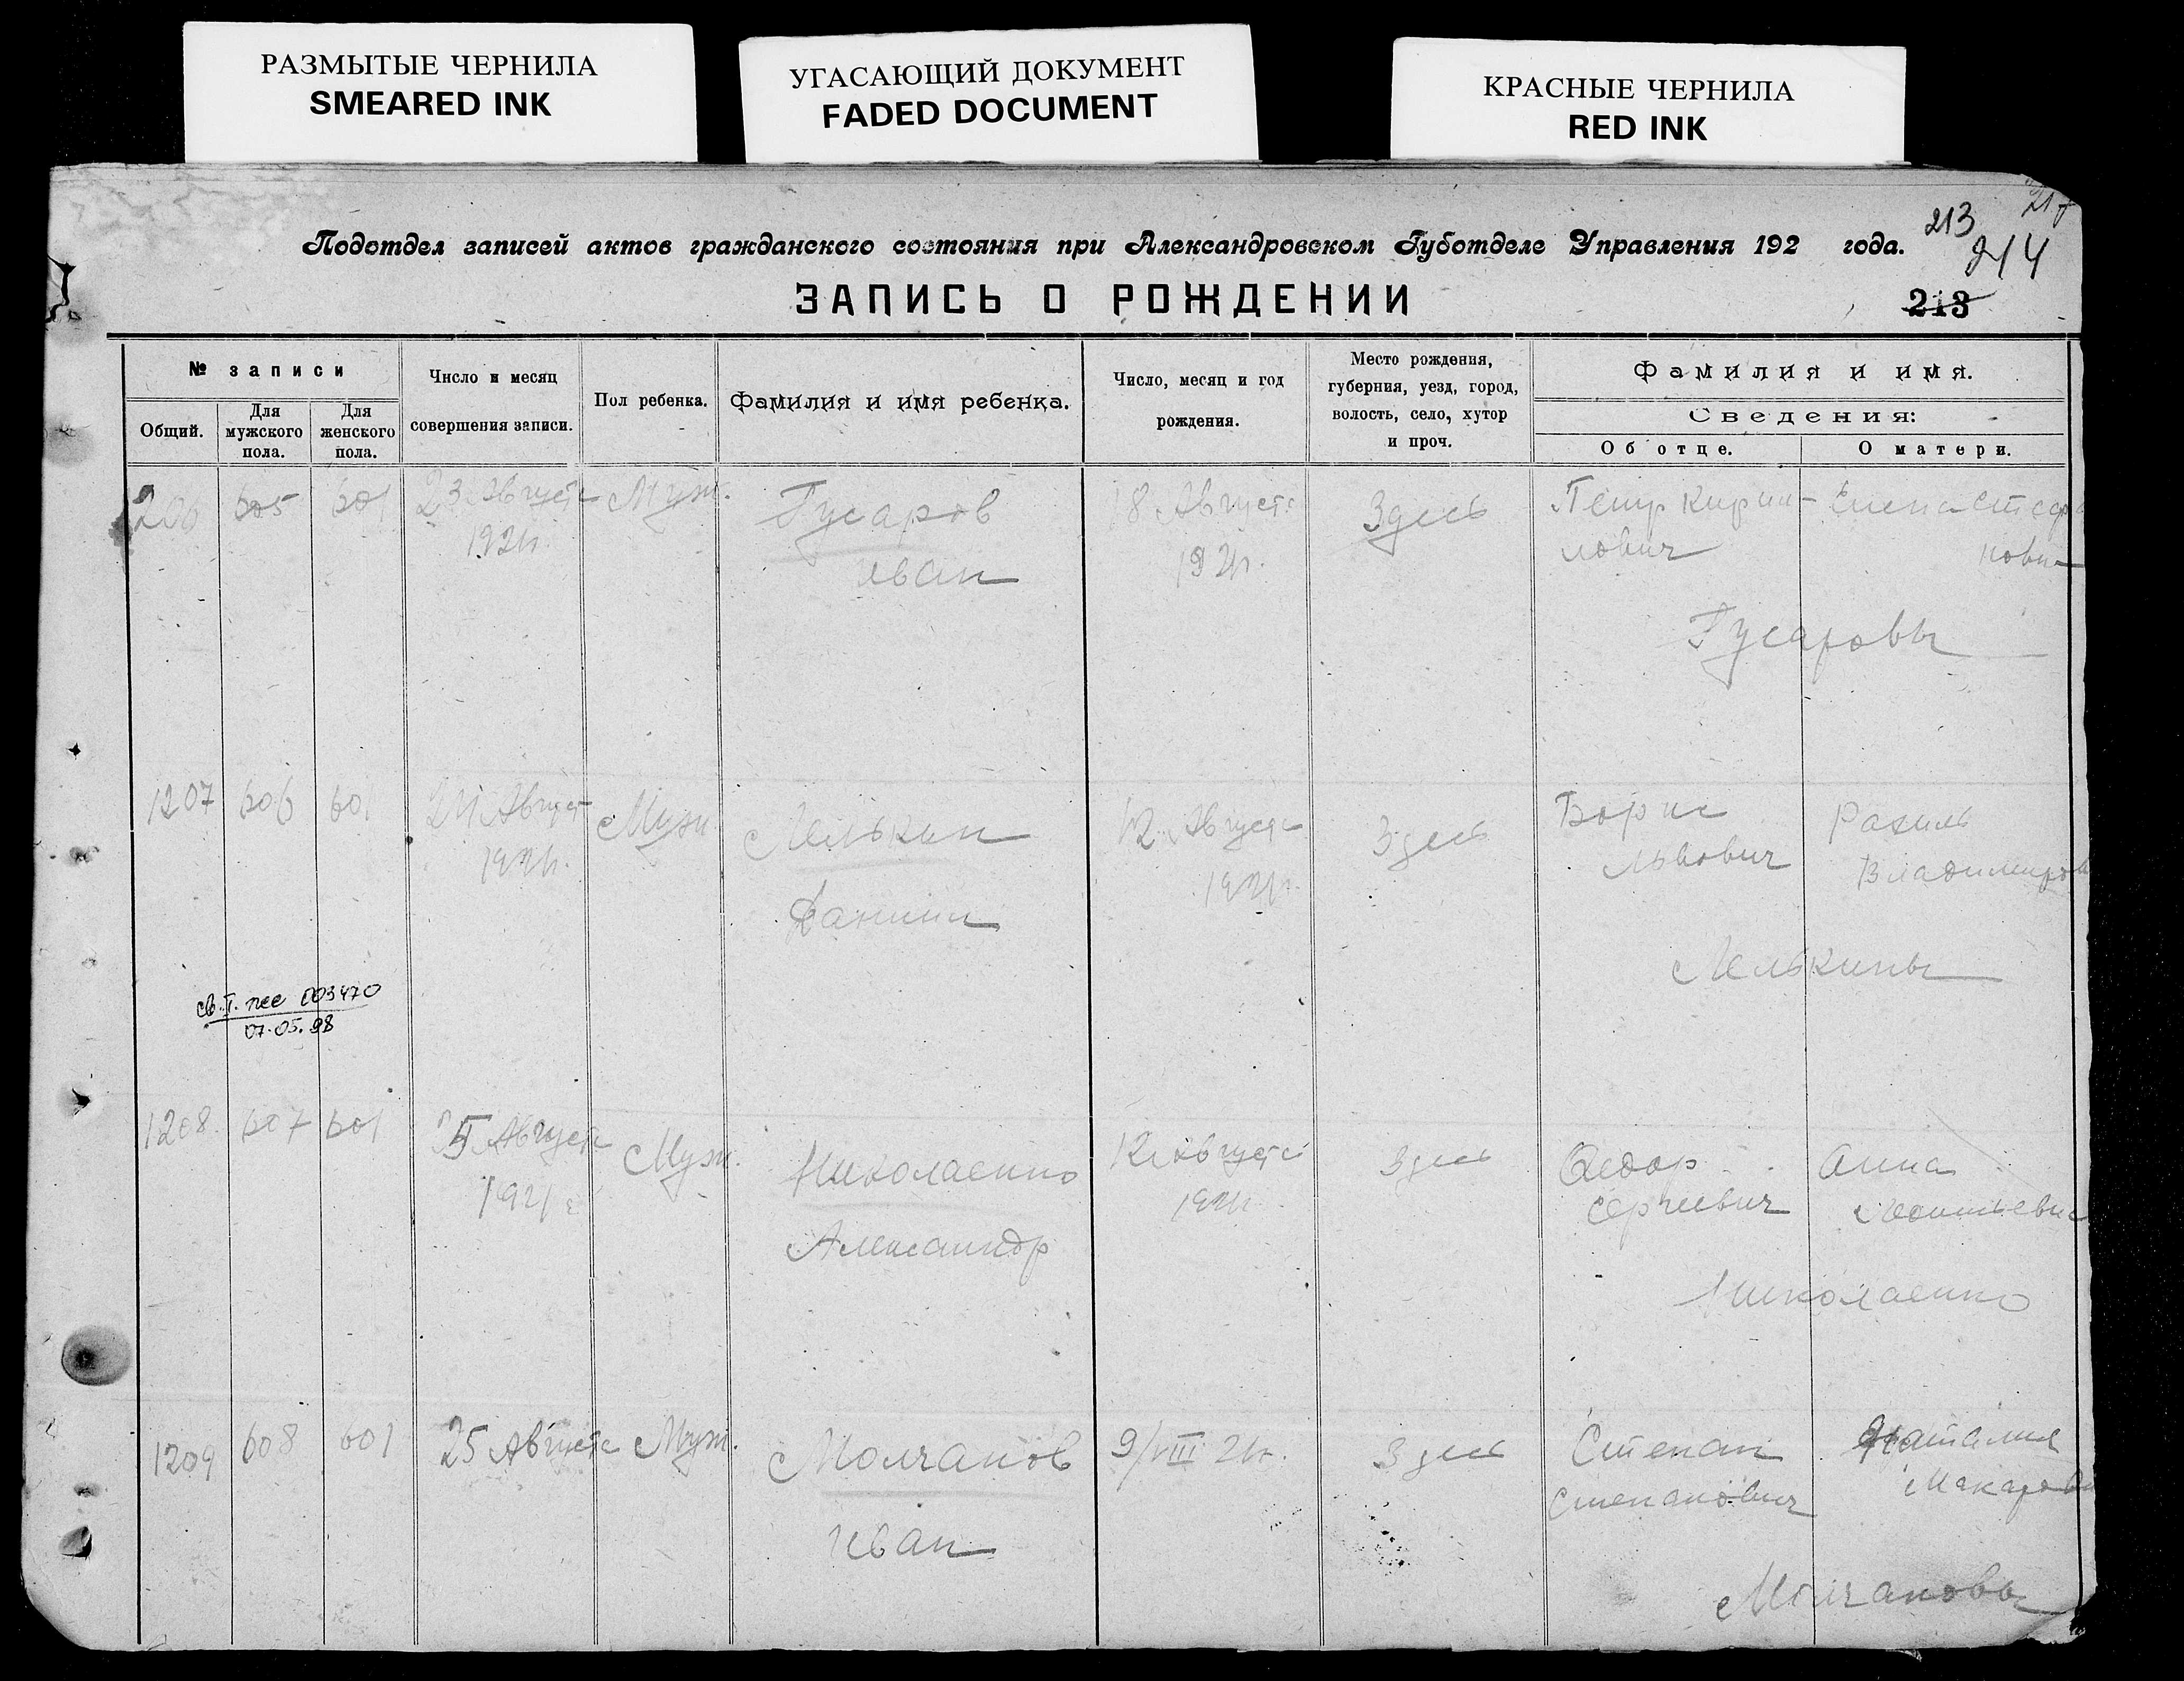 РАЗМЫТЫЕ ЧЕРНИЛА
SMEARED INK
УГАСАЮЩИЙ ДОКУМЕНТ
FADED DOCUMENT
КРАСНЫЕ ЧЕРНИЛА
RED INK
213
214
Подотдел записей актов гражданского состояния при Александровском Губотделе Управления 192 года.
ЗАПИСЬ О РОЖДЕНИИ
213
№ записи
Общий.
Для мужского пола.
Для женского пола.
Число и месяц
совершения записи.
Пол ребенка.
Фамилия и имя ребенка.
Число, месяц и год
рождения.
Место рождения,
губерния, уезд, город,
волость, село, хутор
и проч.
Фамилия и имя.
Сведения:
Об отце.
О матери.
206 605 601 23 Августа Муж. Гусаров 18 Августа Здесь Петр Кирил-
1921г. Иван 1921г. лович
Гусаровы
1207 606 601 24 Август Муж Мелькин 12 Августа Здесь Борис Рахиль
1921г. Даниил 1921г. Львович Владимиров
Мелькины
св. I. пее 003470
07.05.98
1208 607 601 25 Августа Муж. Николаенко 12 Августа Здесь Федор Анна
1921г Александр 1921г. Сергеевич
Николаенко
1209 608 601 25 Августа Муж. Молчанов 9/VIII 21г. Здесь Степан Наталия
Иван Степанович Макаров
Молчановы